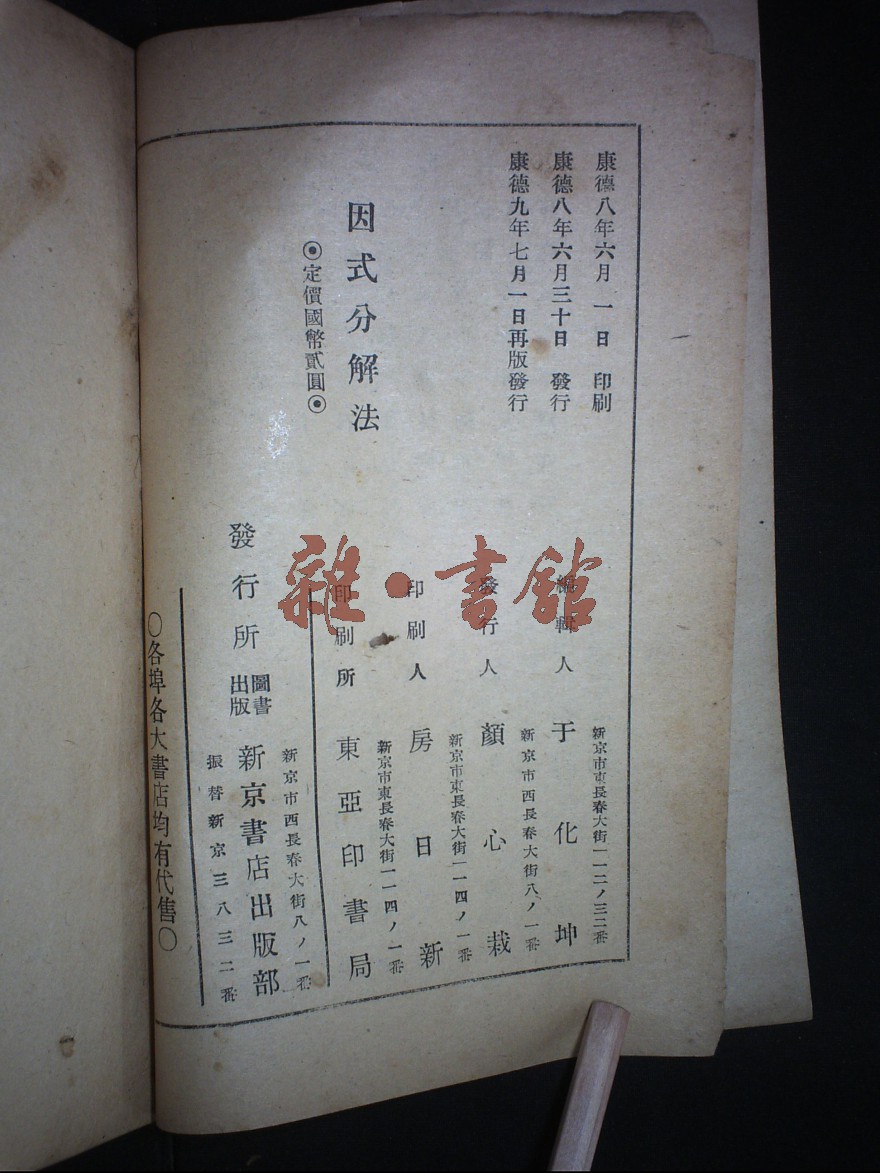 康德八年六月一日印刷
康德八年六月三十日發行
康德九年七月一日再版發行
因式分解法
◉定價國幣貳圓◉
新京市東長春大街一一二ノ三二番
編輯人 于化坤
新京市西長春大街八ノ一番
發行人 顏心栽
新京市東長春大街一一四ノ一番
印刷人 房日新
新京市東長春大街一一四ノ一番
印刷所 東亞印書局
新京市西長春大街八ノ一番
發行所 圖書出版 新京書店出版部
振替新京三八三二番
○各埠各大書店均有代售○
雜·書館